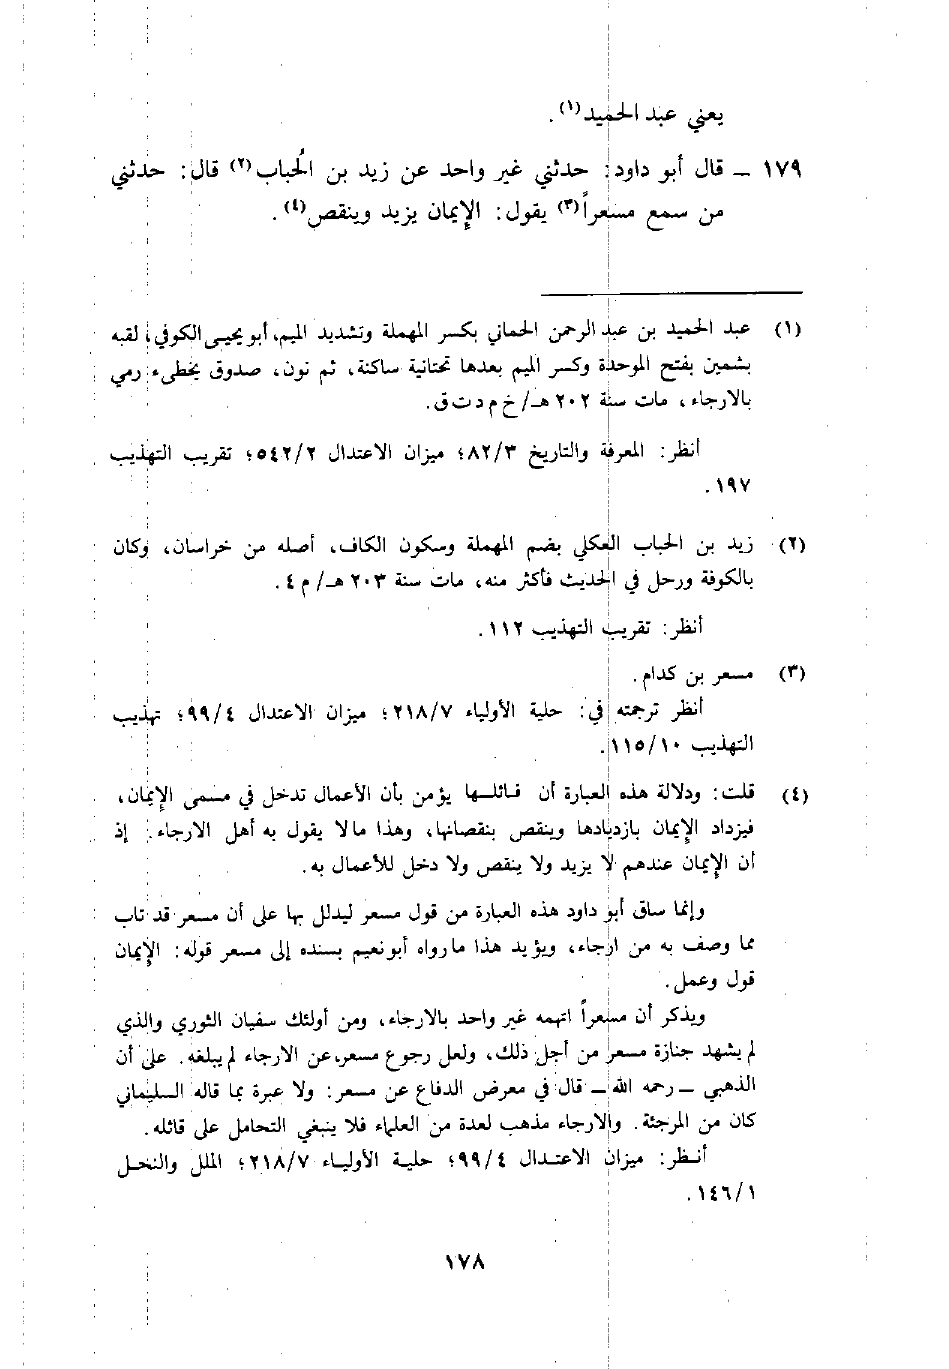 يعني عبد الحميد(١).
١٧٩ ــ قال أبو داود: حدثني غير واحد عن زيد بن الحُباب(٢) قال: حدثني
من سمع مسعراً(٣) يقول: الإيمان يزيد وينقص(٤).
(١) عبد الحميد بن عبد الرحمن الحماني بكسر المهملة وتشديد الميم، أبو يحيى الكوفي، لقبه
بشمين بفتح الموحدة وكسر الميم بعدها تحتانية ساكنة، ثم نون، صدوق يخطىء رمي
بالارجاء، مات سنة ٢٠٢ هـ/ خ م د ت ق.
أنظر: المعرفة والتاريخ ٨٢/٣؛ ميزان الاعتدال ٥٤٢/٢؛ تقريب التهذيب
١٩٧.
(٢) زيد بن الحباب العكلي بضم المهملة وسكون الكاف، أصله من خراسان، وكان
بالكوفة ورحل في الحديث فأكثر منه، مات سنة ٢٠٣ هـ/ م ٤.
أنظر: تقريب التهذيب ١١٢.
(٣) مسعر بن كدام.
أنظر ترجمته في: حلية الأولياء ٢١٨/٧؛ ميزان الاعتدال ٩٩/٤؛ تهذيب
التهذيب ١١٥/١٠.
(٤) قلت: ودلالة هذه العبارة أن قائلها يؤمن بأن الأعمال تدخل في مسمى الإيمان،
فيزداد الإيمان بازديادها وينقص بنقصانها، وهذا ما لا يقول به أهل الارجاء. إذ
أن الإيمان عندهم لا يزيد ولا ينقص ولا دخل للأعمال به.
وإنما ساق أبو داود هذه العبارة من قول مسعر ليدلل بها على أن مسعر قد تاب
مما وصف به من ارجاء، ويؤيد هذا ما رواه أبو نعيم بسنده إلى مسعر قوله: الإيمان
قول وعمل.
ويذكر أن مسعراً اتهمه غير واحد بالارجاء، ومن أولئك سفيان الثوري والذي
لم يشهد جنازة مسعر من أجل ذلك، ولعل رجوع مسعر، عن الارجاء لم يبلغه. على أن
الذهبي ــ رحمه الله ــ قال في معرض الدفاع عن مسعر: ولا عبرة بما قاله السليماني
كان من المرجئة. والارجاء مذهب لعدة من العلماء فلا ينبغي التحامل على قائله.
أنظر: ميزان الاعتدال ٩٩/٤؛ حلية الأولياء ٢١٨/٧؛ الملل والنحل
١٤٦/١.
١٧٨